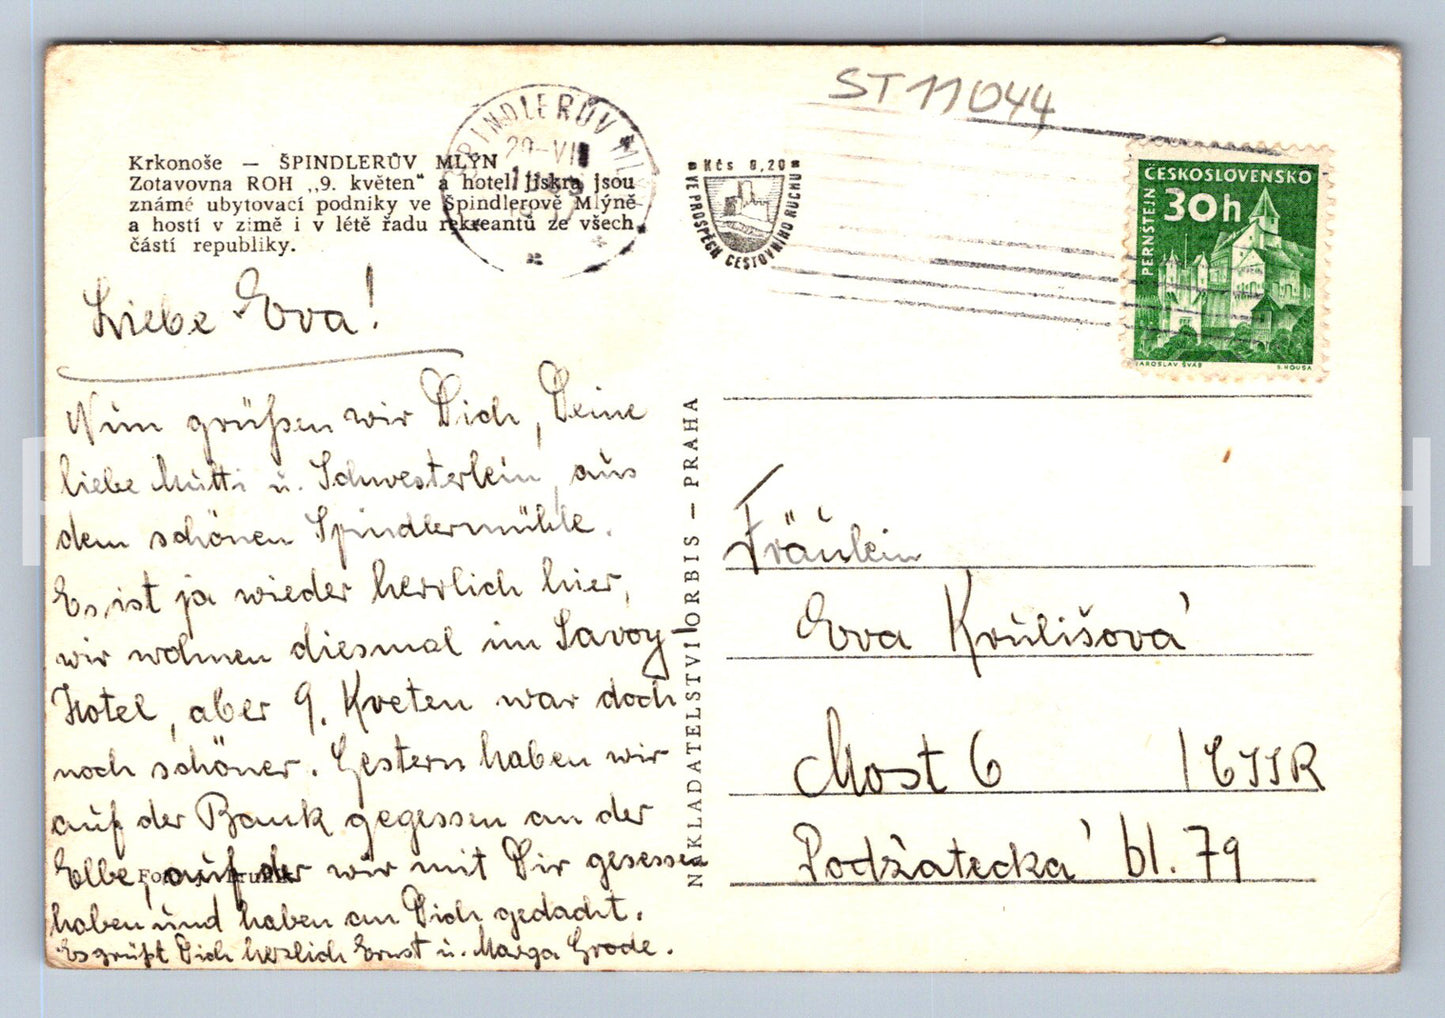 ST 11044
Krkonoše — ŠPINDLERŮV MLÝN
Zotavovna ROH „9. květen“ a hotel Jiskra jsou
známé ubytovací podniky ve Špindlerově Mlýně
a hostí v zimě i v létě řadu rekreantů ze všech
částí republiky.
ŠPINDLERŮV MLÝN
29-VII
Kčs 0,20
VE PROSPĚCH CESTOVNÍHO RUCHU
ČESKOSLOVENSKO
30h
PERNŠTEJN
JAROSLAV ŠVÁB
Liebe Eva!
Nun grüßen wir Dich, Deine
liebe Mutti u. Schwesterlein, aus
dem schönen Spindlermühle.
Es ist ja wieder herrlich hier,
wir wohnen diesmal im Savoy
Hotel, aber 9. Kveten war doch
noch schöner. Gestern haben wir
auf der Bank gegessen an der
Elbe, auf der wir mit Dir gesessen
haben und haben an Dich gedacht.
Es grüßt Dich herzlich Ernst u. Marga Grode.
NAKLADATELSTVÍ ORBIS — PRAHA
Fräulein
Eva Krůlišová
Most 6 / ČSSR
Podžatecká bl. 79